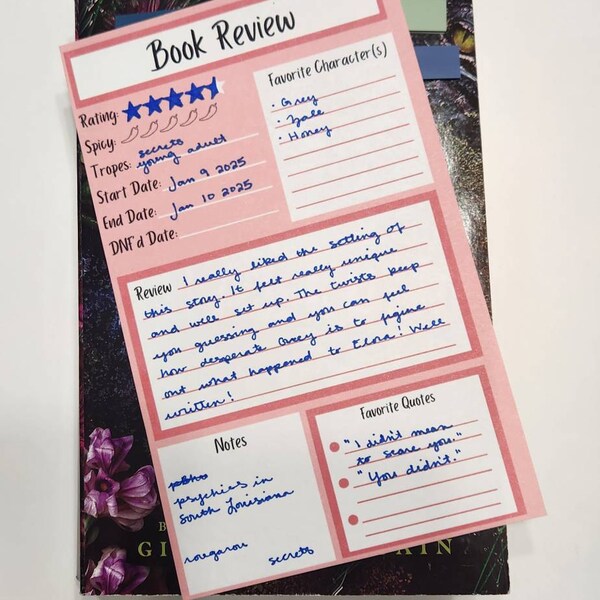 Book Review
Rating:
Spicy:
Tropes: secrets
young adult
Start Date: Jan 9 2025
End Date: Jan 10 2025
DNF'd Date:
Favorite Character(s)
· Grey
· Zale
· Honey
Review I really liked the setting of
this story. It felt really unique
and well set up. The twists keep
you guessing and you can feel
how desperate Grey is to figure
out what happened to Elora! Well
written!
Notes
psychics in
South Louisiana
rougarou
secrets
Favorite Quotes
"I didn't mean
to scare you."
"You didn't."
B
GI
KIN